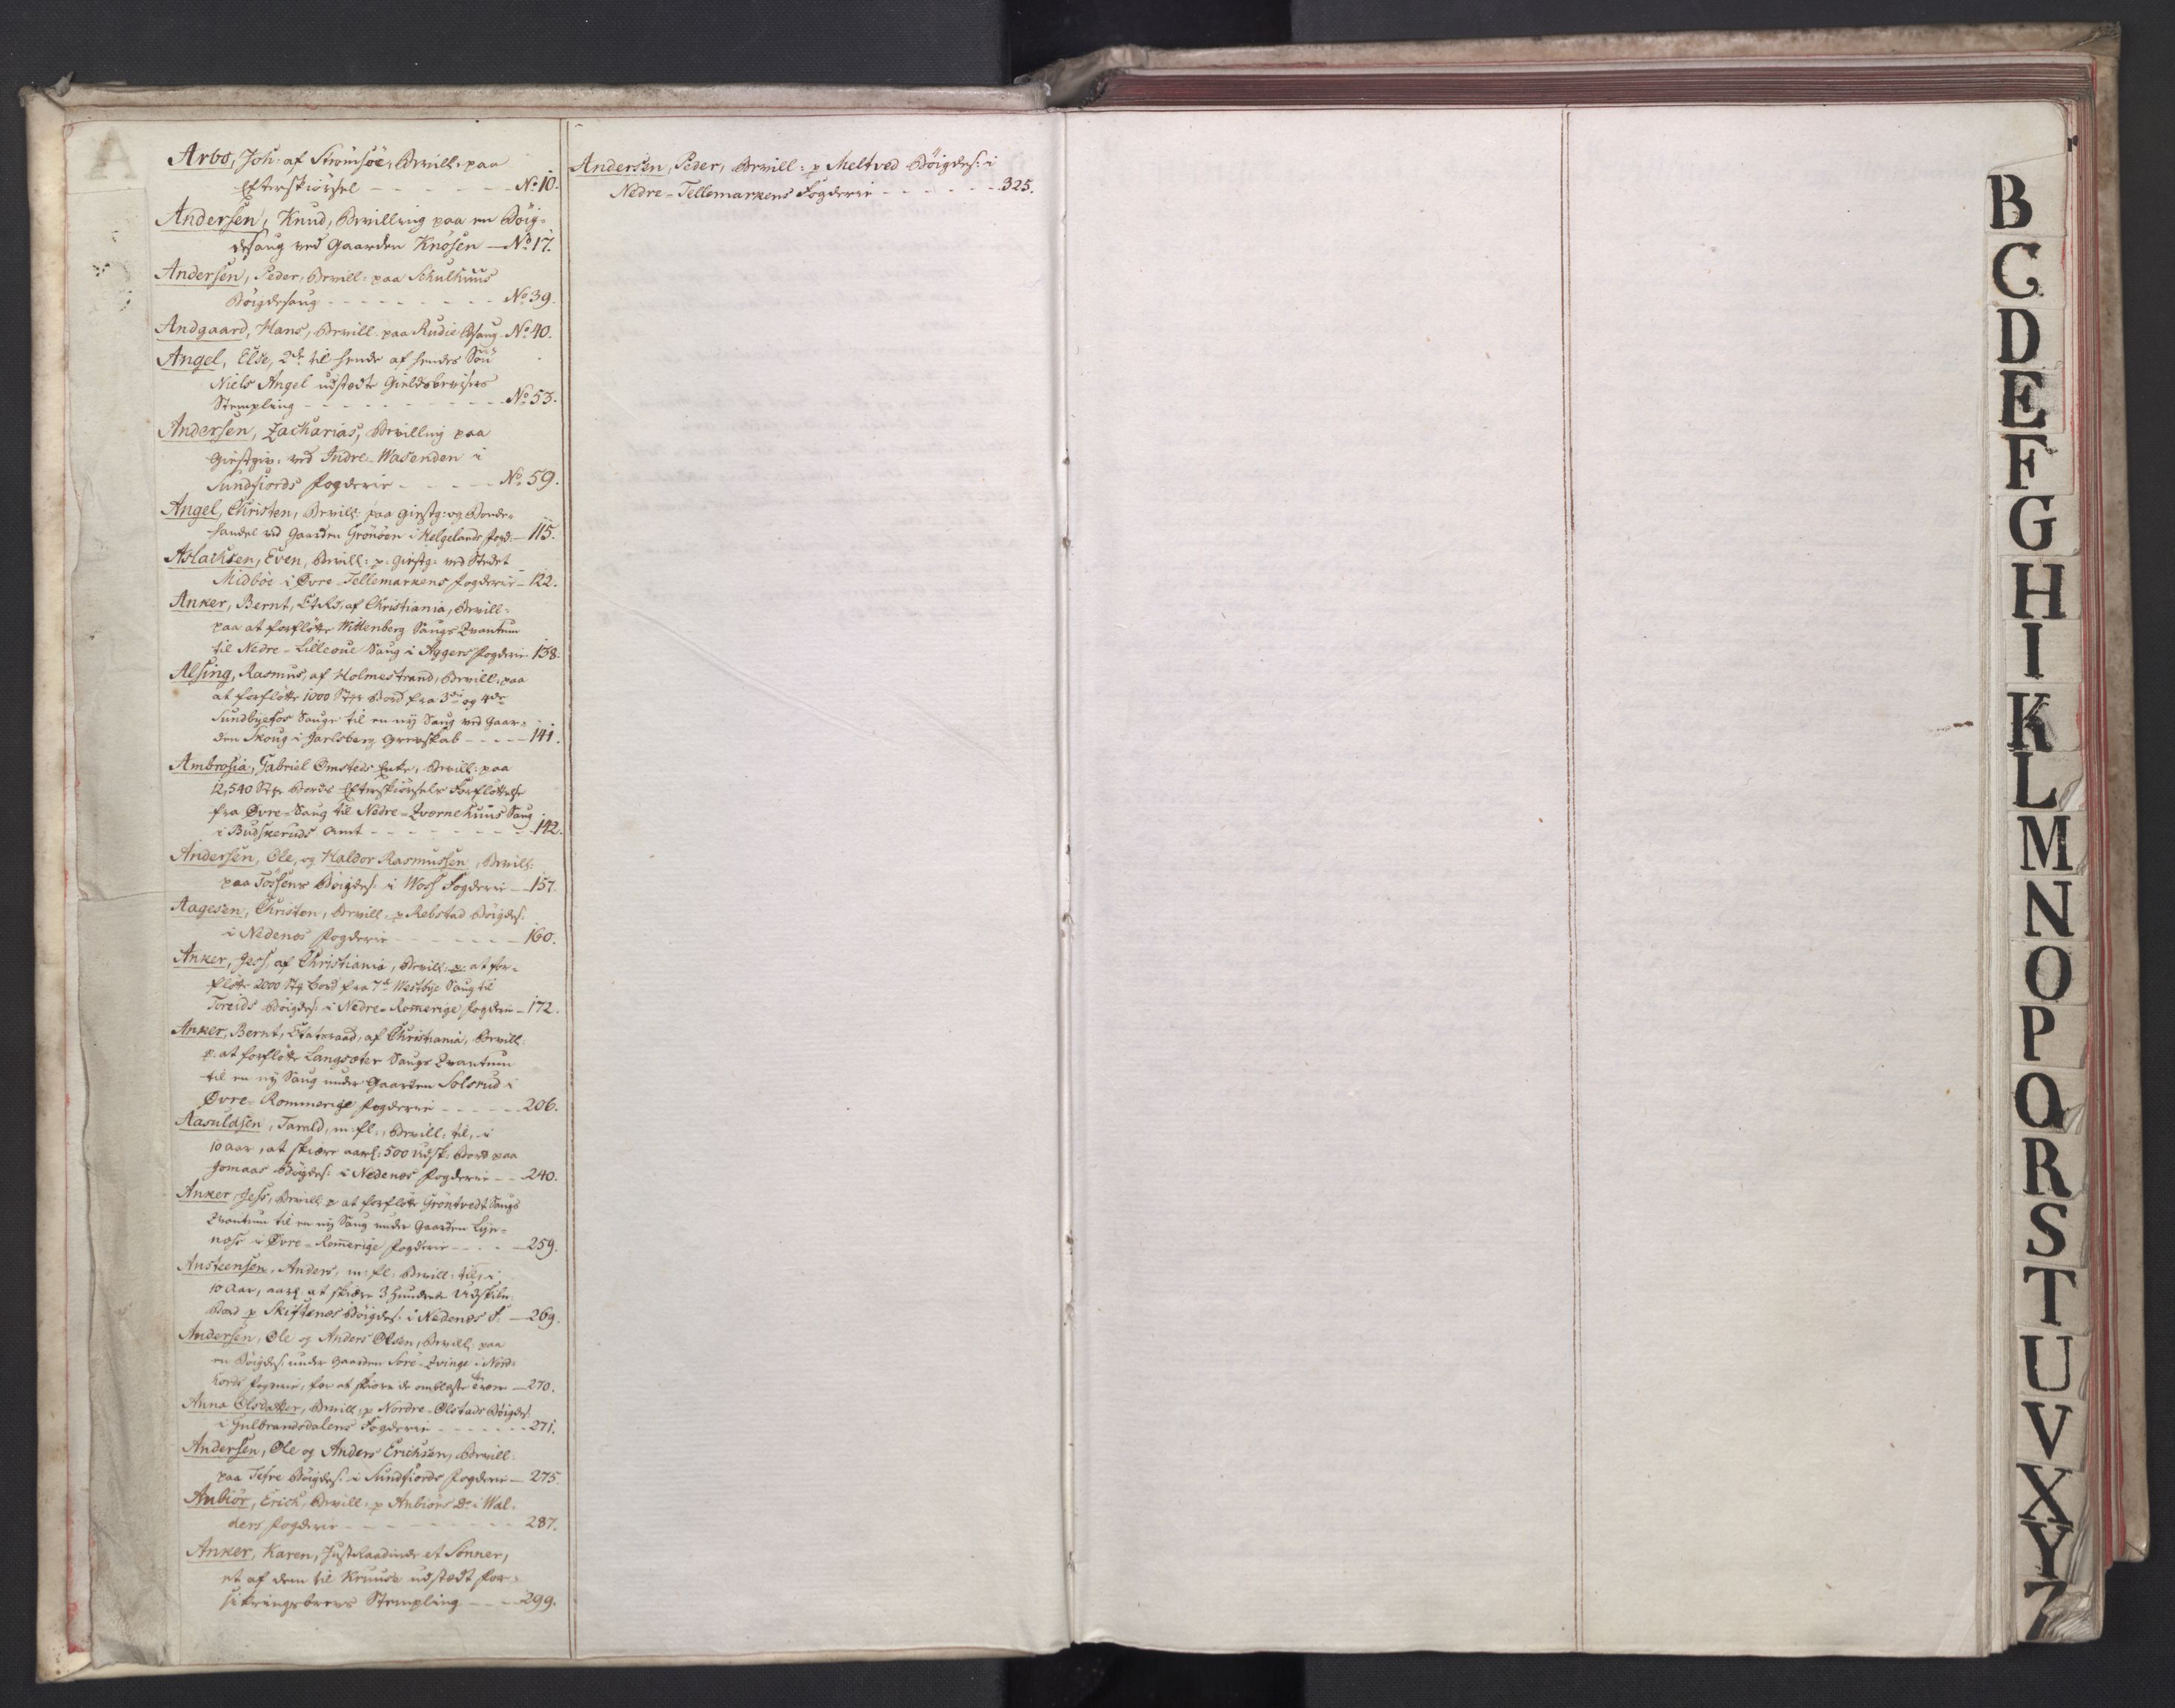 A
Arbo, Joh: af Strömsöe, Bevill: paa
Efterskiörsel - - - - - - No. 10.
Andersen, Knud, Bevilling paa en Böig-
desaug ved Gaarden Knosen — No. 17.
Andersen, Peder, Bevill: paa Schulhuus
Böigdesaug - - - - - - - - No. 39.
Andgaard, Hans, Bevill. paa Rudie Bsaug. No. 40.
Angel, Else, 2de til hende af hendes Sön
Niels Angel udstædte Gieldsbevisers
Stempling - - - - - - - - - No. 53.
Andersen, Zacharias, Bevilling paa
Giestgiv: ved Indre-Wasenden i
Sundfiords Fogderie - - - - - No. 59.
Angel, Christen, Bevill: paa Giestg: og Bonde-
handel ved Gaarden Grönöen i Helgelands Fogd: — 115.
Aslachsen, Even, Bevill: p. Giestg: ved Stedet
Midböe i Øvre-Tellemarkens Fogderie — 122.
Anker, Bernt, EtsRd, af Christiania, Bevill:
paa at forflötte Wittenberg Saugs Qvantum
til Nedre-Lilleoue Saug i Aggers Fogderie 138.
Alsing, Rasmus, af Holmestrand, Bevill: paa
at forflötte 1000 Stk Bord fra 3die og 4de
Sundbyefos Sauge til en nÿ Saug ved Gaar-
den Skoug i Jarlsberg Grevskab - - - - 141.
Ambrosia, Gabriel Omsteds Enke, Bevill: paa
12,540 Stk Bords Efterskiörsels Forflöttelse
fra Øvre-Saug til Nedre-Qvernehuus Saug
i Budskeruds Amt - - - - - - - - 142.
Andersen, Ole, og Haldor Rasmussen, Bevill:
paa Tössens Böigdes: i Woss Fogderie — 157.
Aagesen, Christen, Bevill: p Rebstad Böigdes:
i Nedenes Fogderie - - - - - - - 160.
Anker, Jess, af Christiania, Bevill: p: at for-
flötte 2000 Stk Bord fra 7de Westbye Saug til
Toreids Böigdes: i Nedre-Romerige Fogderie — 172.
Anker, Bernt, Etatsraad, af Christiania, Bevill:
p. at forflötte Langsæter Saugs Qvantum
til en nÿ Saug under Gaarden Solsrud i
Øvre-Rommerige Fogderie - - - - - 206.
Aasuldsen, Tarald, m: fl:, Bevill: til, i
10 Aar, at skiære aarl: 500 Udsk: Bord paa
Jomaas Böigdes: i Nedenes Fogderie - - 240.
Anker, Jess, Bevill: p at forflötte Gröntvedt Saugs
Qvantum til en nÿ Saug under Gaarden Lye-
næss i Øvre-Romerige Fogderie - - - - 259.
Austeensen, Anders, m: fl: Bevill: til, i
10 Aar, aarl at skiære 3 hundrede Udskibn:
Bord p Skiftenes Böigdes: i Nedenes F. — 269.
Andersen, Ole og Anders Olsen, Bevill: paa
en Böigdes: under Gaarden Söre-Qvinge i Nord-
hords Fogderie, for at skiære de omblæste Træer — 270.
Anna Olsdatter, Bevill: p Nordre-Olstads Böigdes:
i Gulbrandsdalens Fogderie - - - - - - 271.
Andersen, Ole og Anders Erichsen, Bevill.
paa Tefre Böigdes: i Sundfiords Fogderie — 275.
Aubiör, Erich, Bevill: p Aubiörs Do i Wal-
ders Fogderie - - - - - - - - - 287.
Anker, Karen, JustRaadinde et Sönner,
et af dem til Kruuse udstædt For-
sikringsbrevs Stempling - - - 299.
Andersen, Peder, Bevill: p Meltved Böigdes: i
Nedre-Tellemarkens Fogderie - - - - - - 325.
B
C
D
E
F
G
H
I
K
L
M
N
O
P
Q
R
S
T
U
V
X
Y
Z